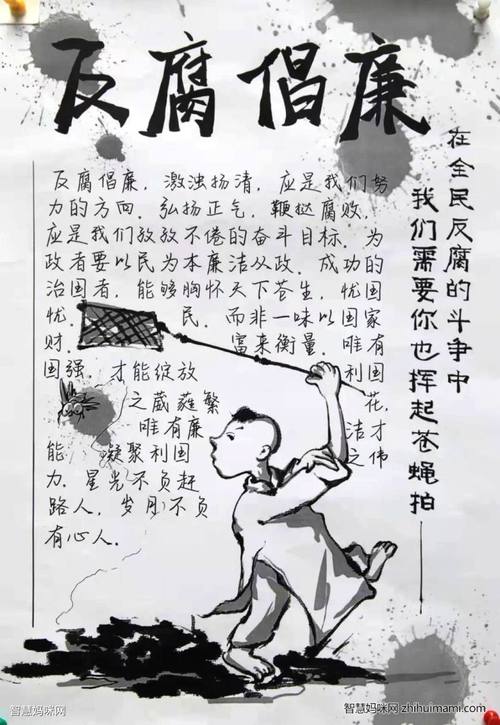 反腐倡廉
在全民反腐的斗争中
我们需要你也挥起苍蝇拍
反腐倡廉，激浊扬清，应是我们努
力的方向．弘扬正气，鞭挞腐败，
应是我们放放不倦的奋斗目标．为
政者要以民为本廉洁从政．成功的
治国者，能够胸怀天下苍生，忧国
忧 民．而非一味以国家
财． 富来衡量．唯有
国强，才能绽放 利国
之葳蕤繁 花，
唯有廉 洁才
能 凝聚利国 之伟
力．星光不负赶
路人，岁月不负
有心人．
智慧妈咪网
智慧妈咪网 zhihuimami.com
智慧妈咪网(https://zhihuimami.com)